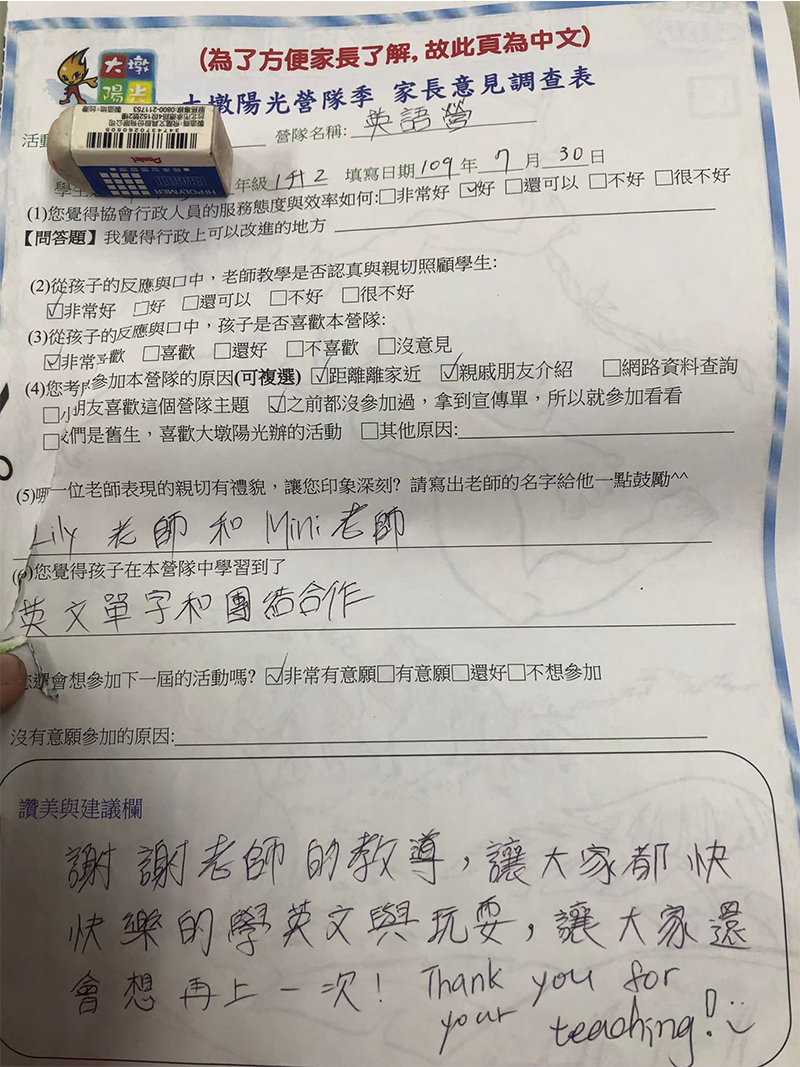 (為了方便家長了解,故此頁為中文)
大墩
陽光
大墩陽光營隊季 家長意見調查表
活動
營隊名稱: 英語營
年級 1升2 填寫日期 109 年 7 月 30 日
Pentel
HI-POLYMER
3474370260505
0800-211753
(1)您覺得協會行政人員的服務態度與效率如何:□非常好 ☑好 □還可以 □不好 □很不好
【問答題】我覺得行政上可以改進的地方
(2)從孩子的反應與口中，老師教學是否認真與親切照顧學生:
☑非常好 □好 □還可以 □不好 □很不好
(3)從孩子的反應與口中，孩子是否喜歡本營隊:
☑非常喜歡 □喜歡 □還好 □不喜歡 □沒意見
(4)您考慮參加本營隊的原因(可複選) ☑距離離家近 ☑親戚朋友介紹 □網路資料查詢
□小朋友喜歡這個營隊主題 ☑之前都沒參加過，拿到宣傳單，所以就參加看看
□我們是舊生，喜歡大墩陽光辦的活動 □其他原因:
(5)哪一位老師表現的親切有禮貌，讓您印象深刻? 請寫出老師的名字給他一點鼓勵^^
Lily 老師 和 Mini 老師
(6)您覺得孩子在本營隊中學習到了
英文單字和團結合作
您還會想參加下一屆的活動嗎? ☑非常有意願□有意願□還好□不想參加
沒有意願參加的原因:
讚美與建議欄
謝謝老師的教導，讓大家都快
快樂的學英文與玩耍，讓大家還
會想再上一次! Thank you for
your teaching!